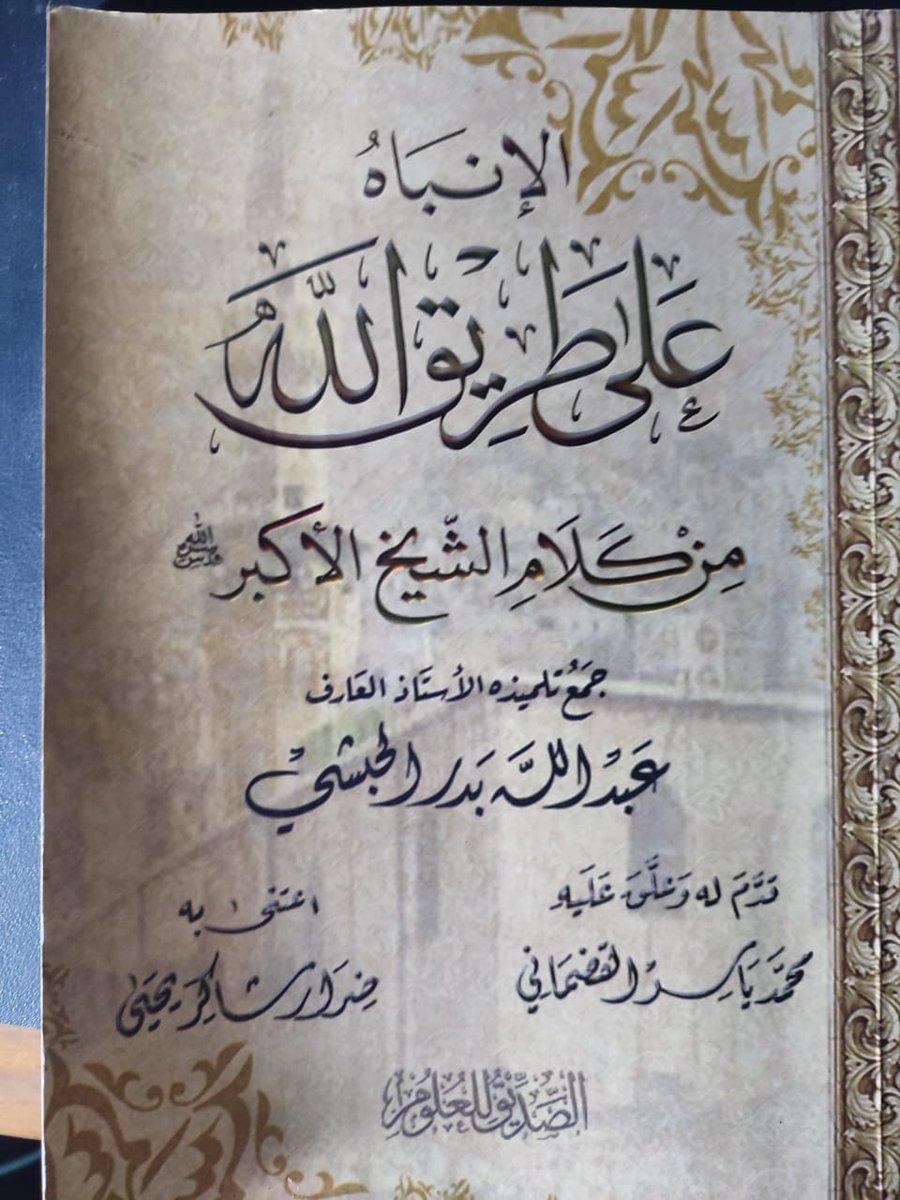 الإنبَاهُ
عَلى طَرِيقِ اللَّهِ
مِنْ كَلَامِ الشَّيخ الأكبر قدس الله سره
جَمعُ تلميذه الأستَاذ العَارف
عَبْد اللَّه بَدر الحَبَشيْ
قدَّمَ له وَعَلَّقَ عَلَيه
محمَّد يَاسر القضمَاني
اعتنى به
ضرَار شاكر يحيَى
الصِّدِّيق للعُلُوم